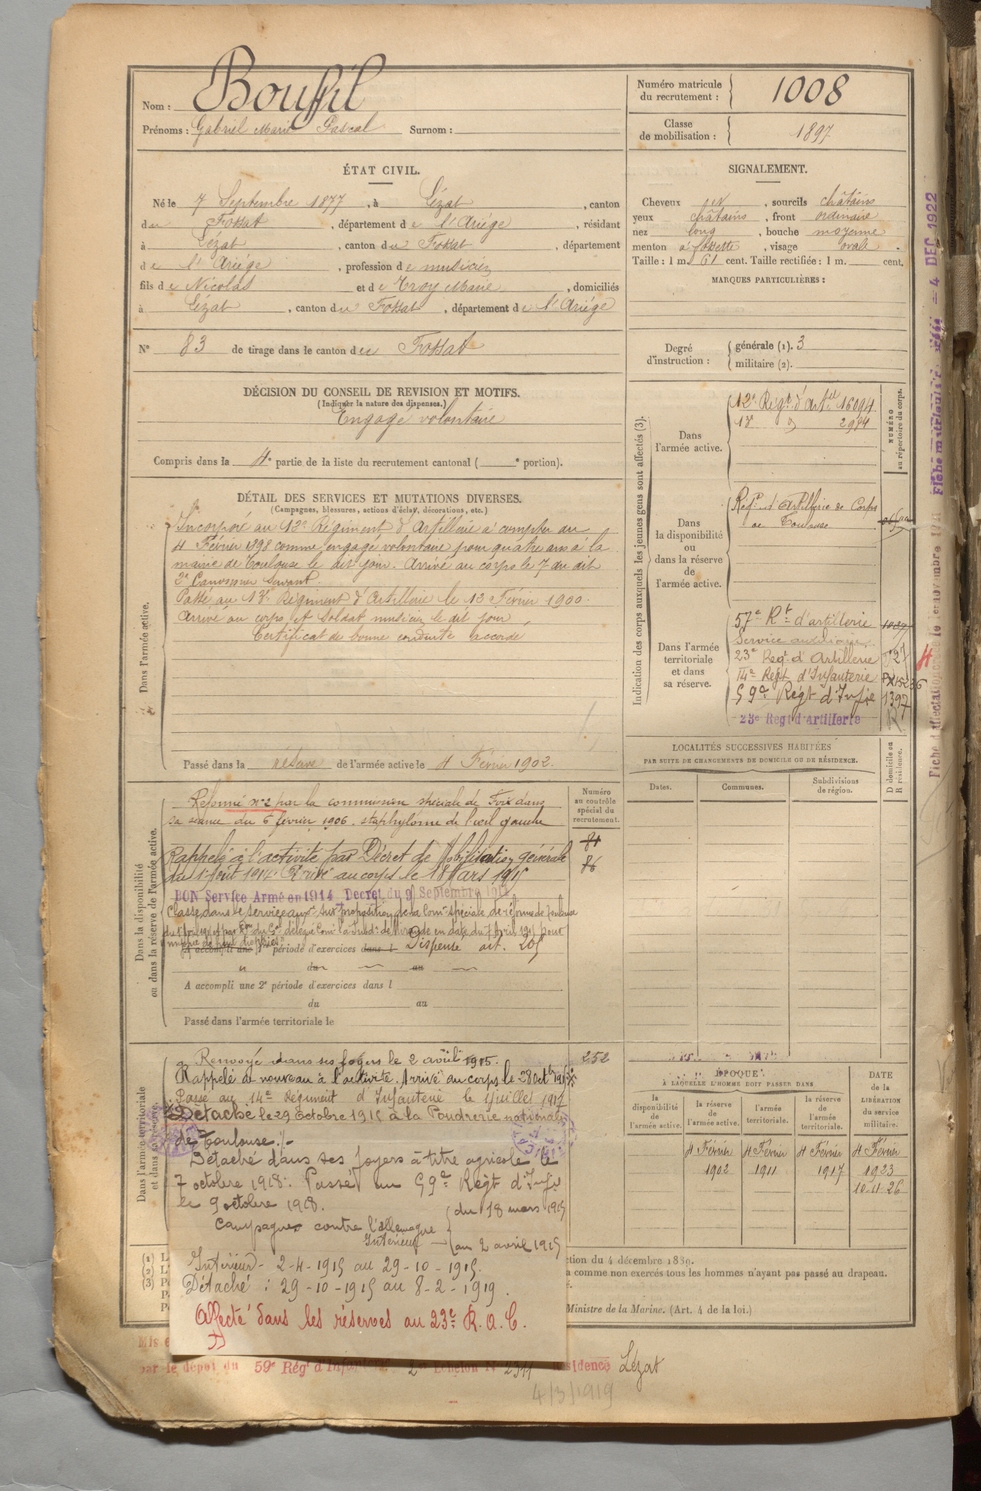 Nom : Boussil
Prénoms : Gabriel Marie Pascal Surnom :
Numéro matricule du recrutement : 1008
Classe de mobilisation : 1897
ÉTAT CIVIL.
Né le 7 Septembre 1877, à Lézat, canton
du Fossat, département de l'Ariége, résidant
à Lézat, canton du Fossat, département
de l'Ariége, profession de musicien
fils de Nicolas et de Troy Marie, domiciliés
à Lézat, canton du Fossat, département de l'Ariége
N° 83 de tirage dans le canton de Fossat
SIGNALEMENT.
Cheveux et, sourcils châtains
yeux châtains, front ordinaire
nez long, bouche moyenne
menton à fossette, visage ovale.
Taille : 1 m. 61 cent. Taille rectifiée : 1 m. cent.
MARQUES PARTICULIÈRES :
Degré d'instruction : générale (1). 3
militaire (2).
DÉCISION DU CONSEIL DE REVISION ET MOTIFS.
(Indiquer la nature des dispenses.)
Engagé volontaire
Compris dans la 4e partie de la liste du recrutement cantonal ( e portion).
DÉTAIL DES SERVICES ET MUTATIONS DIVERSES.
(Campagnes, blessures, actions d'éclat, décorations, etc.)
Dans l'armée active.
Incorporé au 12e Régiment d'Artillerie à compter du
4 Février 1898 comme engagé volontaire pour quatre ans à la
mairie de Toulouse le dit jour. Arrivé au corps le 7 du dit
2e Canonnier Servant.
Passé au 18e Régiment d'Artillerie le 13 Février 1900.
Arrivé au corps et Soldat musicien le dit jour
Certificat de bonne conduite accordé
Passé dans la réserve de l'armée active le 4 Février 1902.
Indication des corps auxquels les jeunes gens sont affectés (3).
NUMÉRO au répertoire du corps.
Dans l'armée active.
12e Régt d'Artie 16094
18 d 2984
Dans la disponibilité ou dans la réserve de l'armée active.
Régt d'Artillerie de Corps
de Toulouse
Dans l'armée territoriale et dans sa réserve.
57e Rt d'artillerie
Service auxiliaire
23e Régt d'Artillerie
14e Régt d'Infanterie
59e Régt d'Infie 1397
23e Régt d'Artillerie
LOCALITÉS SUCCESSIVES HABITÉES
PAR SUITE DE CHANGEMENTS DE DOMICILE OU DE RÉSIDENCE.
Dates. Communes. Subdivisions de région.
D domicile ou R résidence.
Dans la disponibilité ou dans la réserve de l'armée active.
Numéro au contrôle spécial du recrutement.
Réformé n°2 par la commission spéciale de Foix dans
sa séance du 6 février 1906. staphylome de l'œil gauche
Rappelé à l'activité par Décret de Mobilisation générale
du 1 Août 1914. Arrivé au corps le 18 Mars 1915
BON Service Armé en 1914 Decret du 9 Septembre 1914
Classé dans le service auxre sur proposition de la Comon spéciale de réforme de Toulouse
A accompli une 1re période d'exercices dans l Dispensé art. 205
du au
A accompli une 2e période d'exercices dans l
du au
Passé dans l'armée territoriale le
Dans l'armée territoriale et dans sa réserve.
Renvoyé dans ses foyers le 2 avril 1915. 252
Rappelé de nouveau à l'activité. Arrivé au corps le 28 Octbre 1915
Passé au 14e Régiment d'Infanterie le 1 Juillet 1917
Détaché le 29 octobre 1915 à la Poudrerie nationale
de Toulouse.
Détaché dans ses foyers à titre agricole le
7 octobre 1918. Passé au 59e Régt d'Infie
le 9 octobre 1918.
Campagnes contre l'allemagne du 18 mars 1915
Intérieur au 2 avril 1915
Intérieur - 2-4-1915 au 29-10-1915.
Détaché : 29-10-1915 au 8-2-1919.
Affecté dans les réserves au 23e R.A.C.
ÉPOQUE
À LAQUELLE L'HOMME DOIT PASSER DANS
DATE de la LIBÉRATION du service militaire.
la disponibilité de l'armée active.
la réserve de l'armée active.
l'armée territoriale.
la réserve de l'armée territoriale.
4 Février 1902
4 Février 1911
4 Février 1917
4 Février 1923
10.11.26
(1)
(2)
(3)
ction du 4 décembre 1889.
a comme non exercés tous les hommes n'ayant pas passé au drapeau.
Ministre de la Marine. (Art. 4 de la loi.)
par le dépôt du 59e Régt d'Infanterie Échelon N° 2311 résidence Lézat
4/3/1919
4 DEC 1922